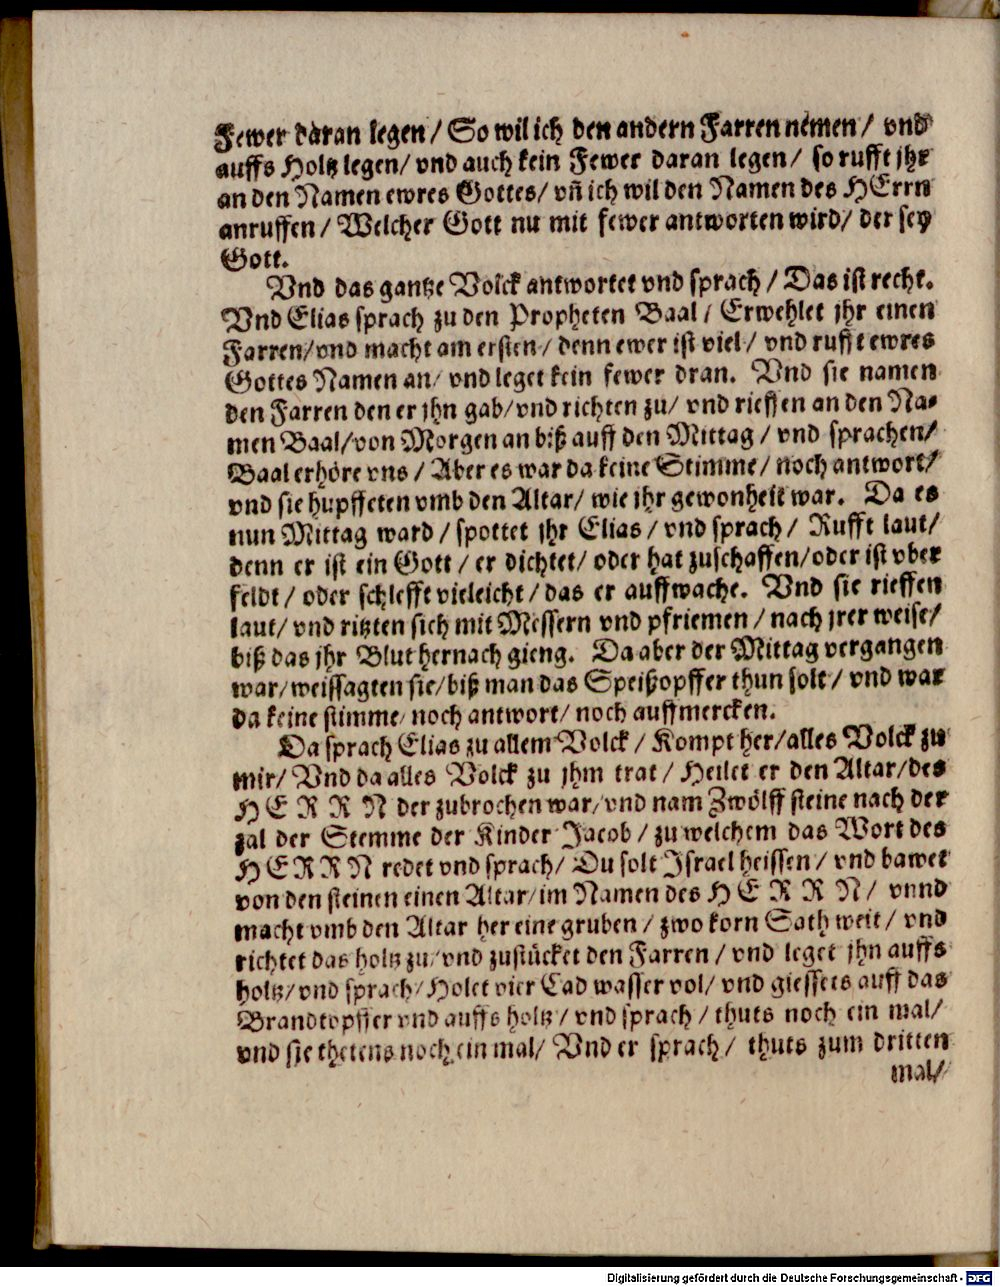 Fewer daran legen / So wil ich den andern Farren nemen / vnd
auffs Holtz legen / vnd auch kein Fewer daran legen / so rufft jhr
an den Namen ewres Gottes / vñ ich wil den Namen des HErrn
anruffen / Welcher Gott nu mit fewer antworten wird / der sey
Gott.
Vnd das gantze Volck antwortet vnd sprach / Das ist recht.
Vnd Elias sprach zu den Propheten Baal / Erwehlet jhr einen
Farren / vnd macht am ersten / denn ewer ist viel / vnd rufft ewres
Gottes Namen an / vnd leget kein fewer dran. Vnd sie namen
den Farren den er jhn gab / vnd richten zu / vnd rieffen an den Na-
men Baal / von Morgen an biß auff den Mittag / vnd sprachen /
Baal erhöre vns / Aber es war da keine Stimme / noch antwort /
vnd sie hupffeten vmb den Altar / wie jhr gewonheit war. Da es
nun Mittag ward / spottet jhr Elias / vnd sprach / Rufft laut /
denn er ist ein Gott / er dichtet / oder hat zuschaffen / oder ist vber
feldt / oder schlefft vieleicht / das er auffwache. Vnd sie rieffen
laut / vnd ritzten sich mit Messern vnd pfriemen / nach jrer weise /
biß das jhr Blut hernach gieng. Da aber der Mittag vergangen
war / weissagten sie / biß man das Speißopffer thun solt / vnd war
da keine stimme / noch antwort / noch auffmercken.
Da sprach Elias zu allem Volck / Kompt her / alles Volck zu
mir / Vnd da alles Volck zu jhm trat / Heilet er den Altar / des
HERRN der zubrochen war / vnd nam Zwölff steine nach der
zal der Stemme der Kinder Jacob / zu welchem das Wort des
HERRN redet vnd sprach / Du solt Israel heissen / vnd bawet
von den steinen einen Altar / im Namen des HERRN / vnnd
macht vmb den Altar her eine gruben / zwo korn Sath weit / vnd
richtet das holtz zu / vnd zustücket den Farren / vnd leget jhn auffs
holtz / vnd sprach / Holet vier Cad wasser vol / vnd giessets auff das
Brandtopffer vnd auffs holtz / vnd sprach / thuts noch ein mal /
vnd sie thetens noch ein mal / Vnd er sprach / thuts zum dritten
mal /
Digitalisierung gefördert durch die Deutsche Forschungsgemeinschaft - DFG